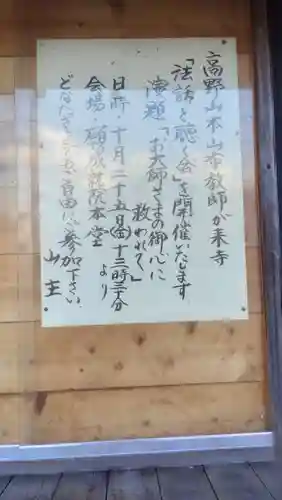 高野山本山布教師が来寺
「法話を聴く会」を開催いたします
演題「お大師さまの御心に
救われて」
日時・十月二十五日(金)十三時三十分
より
会場・願成就院本堂
どなたさまもご自由にご参加下さい。
山主